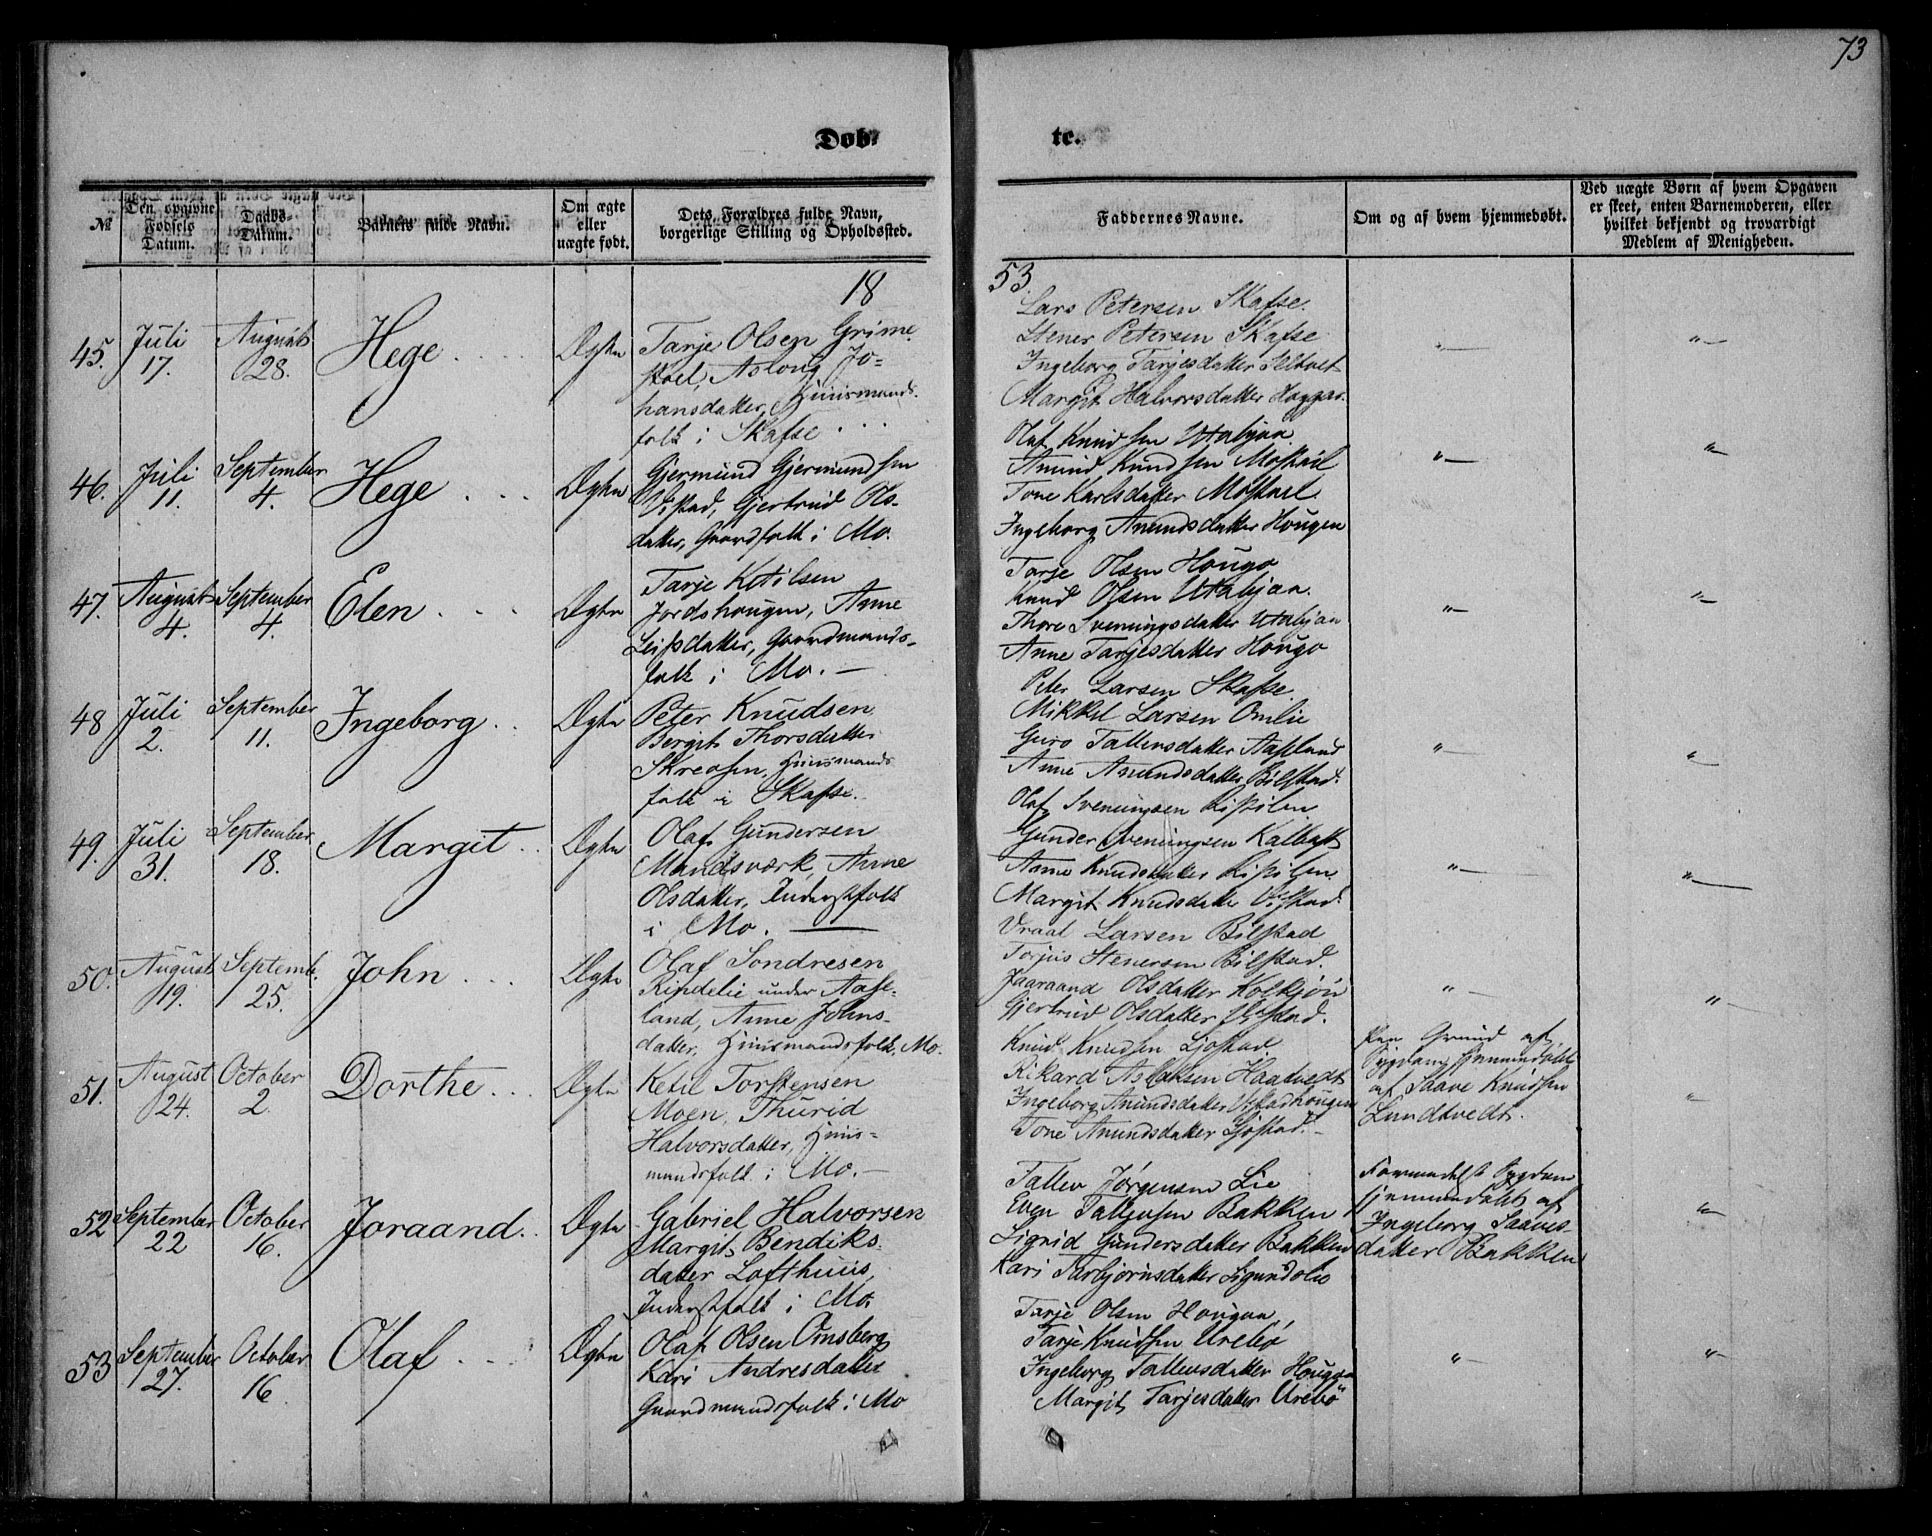 73
Døb-
te.
№
Den opgivne Fødsels Datum.
Daabs-Datum.
Barnets fulde Navn.
Om ægte eller uægte født.
Dets Forældres fulde Navn, borgerlige Stilling og Opholdssted.
Faddernes Navne.
Om og af hvem hjemmedøbt.
Ved uægte Børn af hvem Opgaven er skeet, enten Barnemoderen, eller hvilket bekjendt og troværdigt Medlem af Menigheden.
18
53.
45. Juli 17. August 28. Hege Ægte
Tarje Olsen Grime-
Asloug Jo-
hansdatter, Huusmands-
folk i Skafse
Lars Petersen Skafse.
Stener Petersen Skafse
Ingeborg Tarjesdatter
Margit Halvorsdatter
46. Juli 11. September 4. Hege Ægte
Gjermund Gjermundsen
Vistad, Gjertrud Ols-
datter, Gaardfolk i Mo.
Olaf Knudsen Utabjaa
Anund Knudsen Moskeil
Tone Karlsdatter
Ingeborg Anundsdatter Hougen
47. August 4. September 4. Elen Ægte
Tarje Ketilsen
Jordshougen, Anne
Leifsdatter, Gaardmands-
folk i Mo. —
Tarje Olsen Hougo
Knud Olsen Utabjaa.
Thore Sveningsdatter Utabjaa
Anne Tarjesdatter Hougo
48 Juli 2. September 11. Ingeborg Ægte
Peter Knudsen
Bergit Thorsdatter
Skreosen, Huusmands-
folk i Skafse.
Peter Larsen Skafse.
Mikkel Larsen Omlie
Guro Tallevsdatter Aasland
Anne Anundsdatter Bilstad.
49. Juli 31. September 18. Margit Ægte
Olaf Gundersen
Mandsværk, Anne
Olsdatter, Inderstfolk
i Mo. —
Olaf Sveningsen
Gunder Sveningsen
Anne Knudsdatter
Margit Knudsdatter Vistad.
50. August 19. Septemb. 25. John Ægte
Olaf Sondresen
Rindelie under Aase-
land, Anne Johns-
datter, Huusmandsfolk, Mo.
Vraal Larsen Bilstad
Torjus Stenersen Bilstad.
Jaaraand Olsdatter Kolkjøn
Gjertrud Olsdatter Vistad.
51. August 24. October 2. Dorthe Ægte
Ketil Torstensen
Moen, Thurid
Halvorsdatter, Huus-
mandsfolk i Mo. —
Knud Knudsen Ljostad.
Rikard Aslaksen Haatvedt
Ingeborg Anundsdatter Vistadhougen
Tone Anundsdatter Ljostad. —
Paa Grund af
Sygdom hjemmedøbt
af Saave Knudsen
Lundtvedt.
52 September 22 October 16. Joraand Ægte
Gabriel Halvorsen
Margit Bendiks-
datter Lofthuus,
Inderstfolk i Mo.
Tallev Jørgensen Lie
Even Tallevsen Bakken
Signid Gundersdatter Bakken
Kari Torbjørnsdatter
Formedelst Sygdom
hjemmedøbt af
Ingeborg Saaves-
datter Bakken
53 September 27. October 16. Olaf Ægte
Olaf Olsen Omsberg
Kari Andresdatter
Gaardmandsfolk i Mo
Tarje Olsen Hougaa,
Tarje Knudsen Urebø
Ingeborg Tallevsdatter Hougaa
Margit Tarjesdatter Urebø